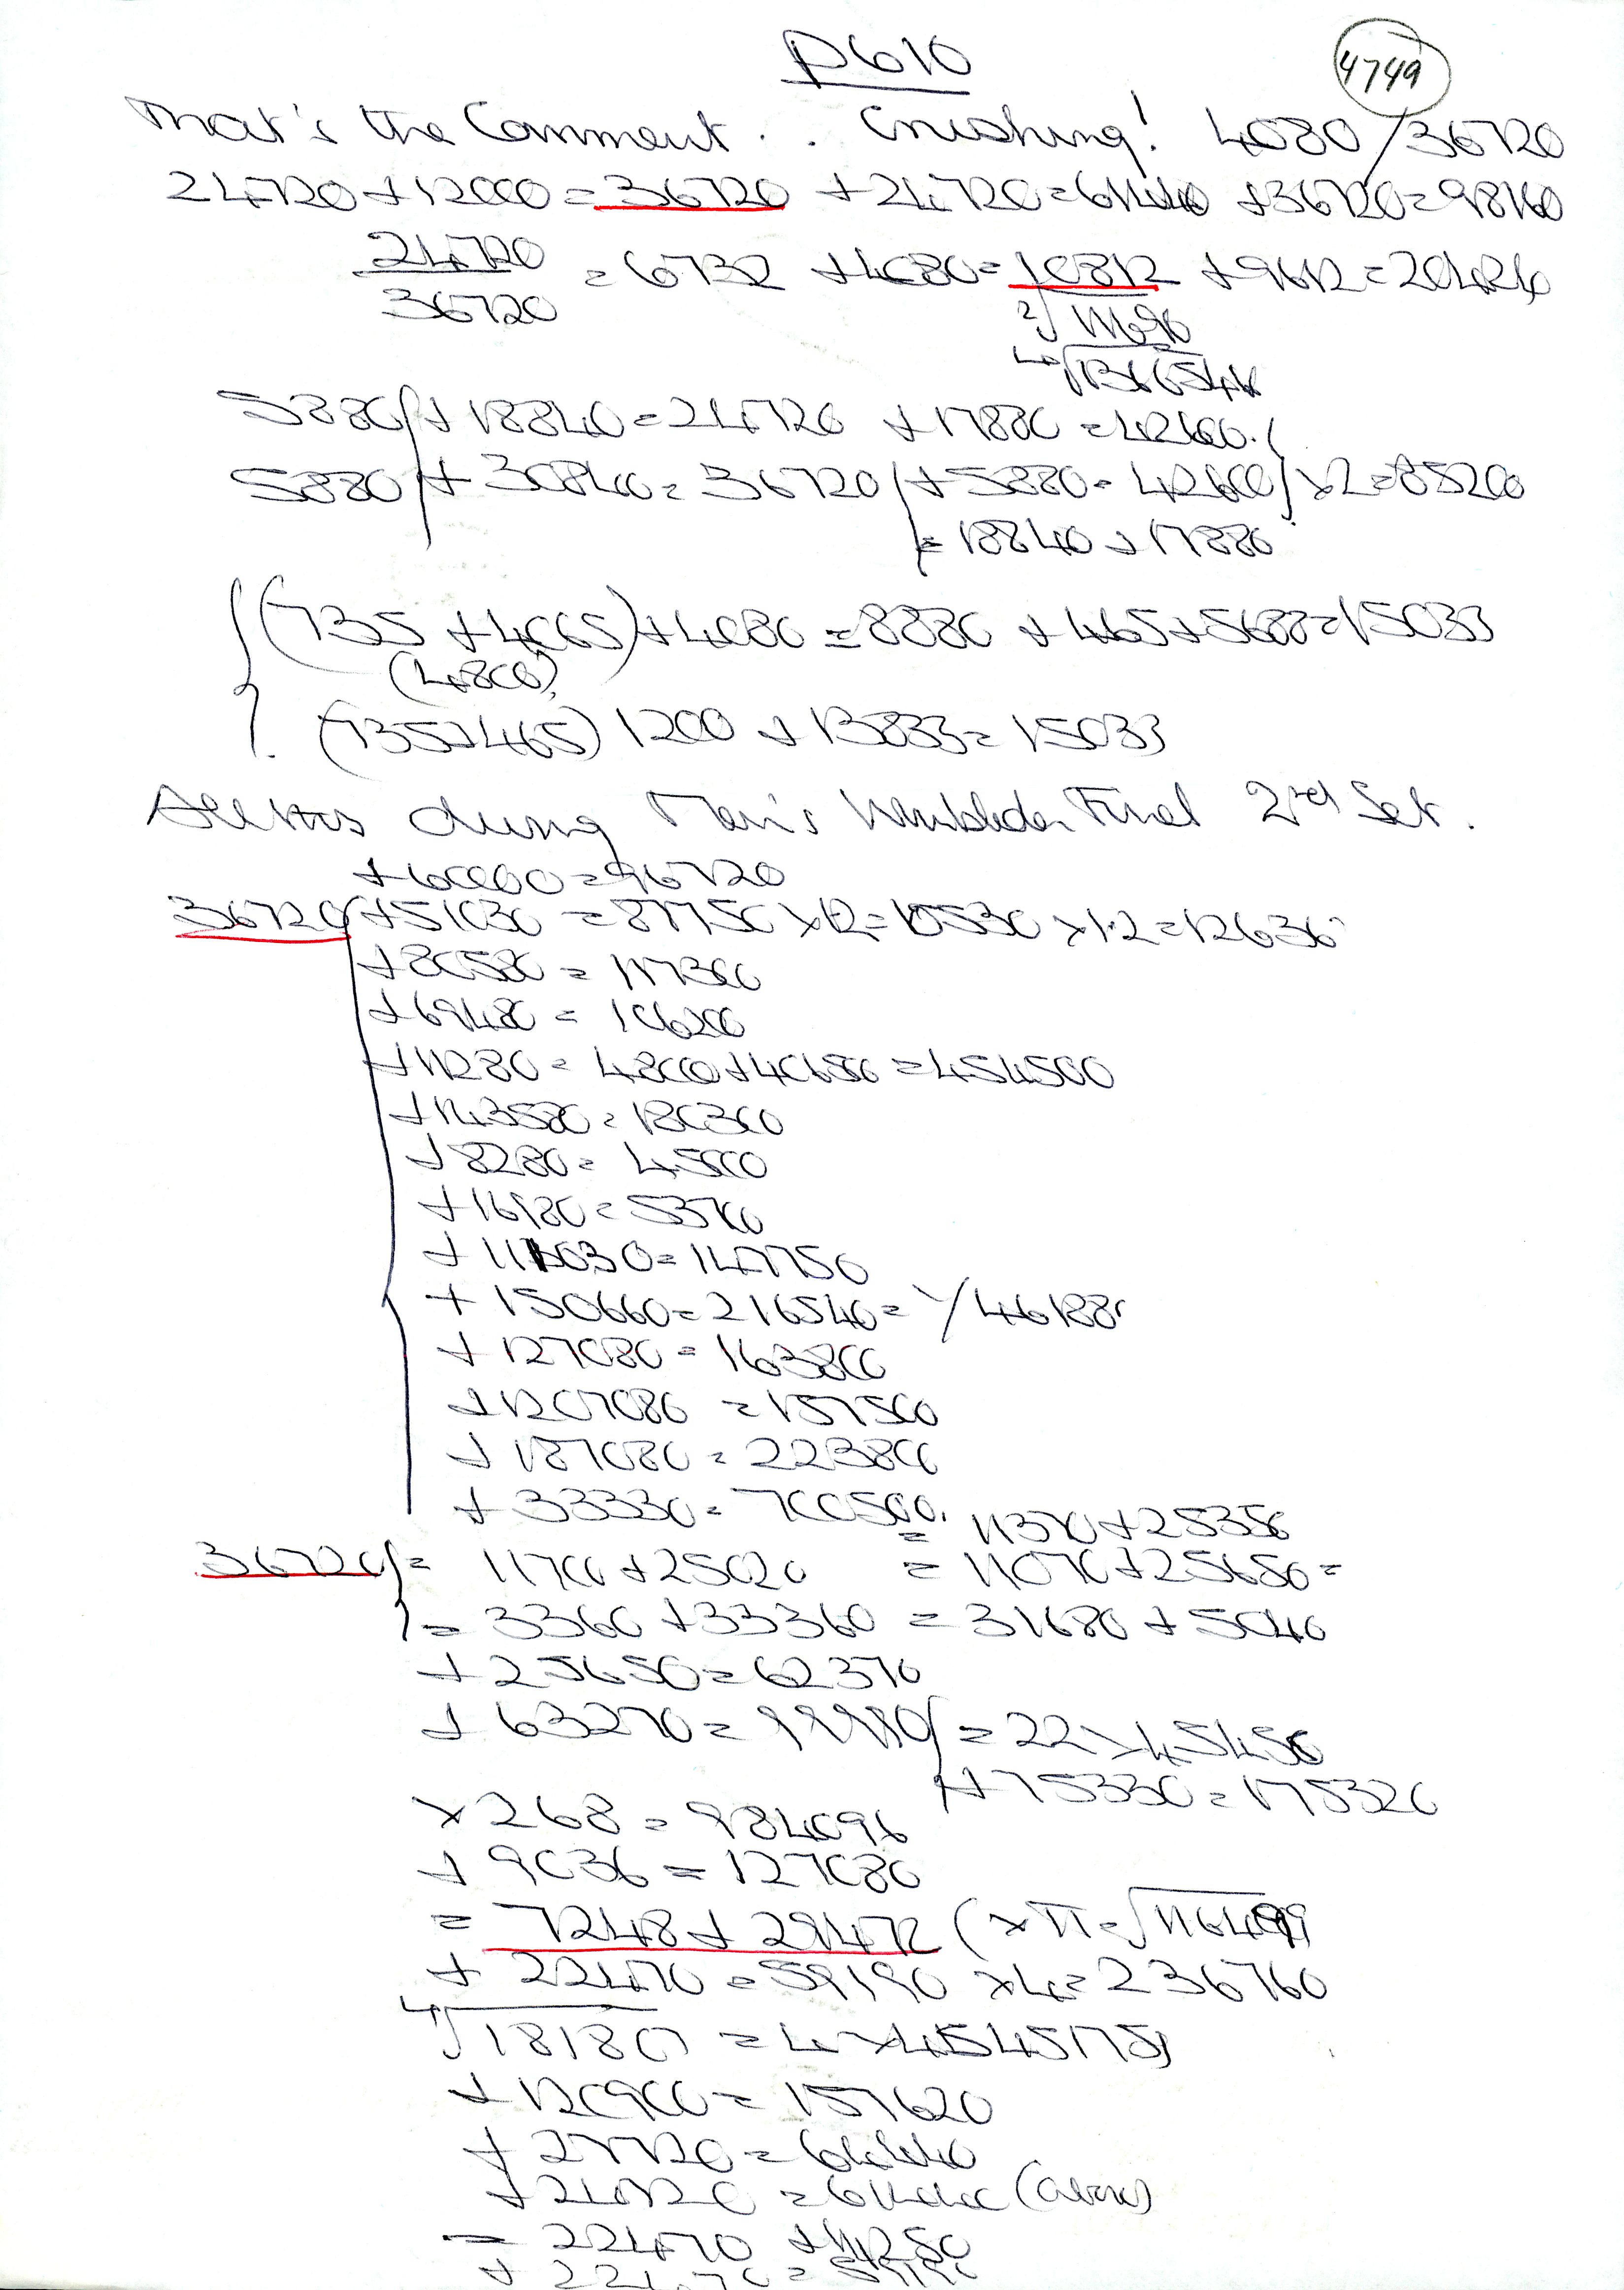 P610
4749
That's the Comment . . Crushing! 4080/36720
24720+12000=36720 +24720=61440 +36720=98160
24720
36720 = 6732 +4080=10812 +9612=20424
5880/+18840=24720 +17880=42600
5880/+30840=36720/+5880=42600/×2=85200
=18840+17880
(735+4065)+4080=8880 +465+5688=15033
(4800)
(735+465) 1200 + 13833=15033
All this during Men's Wimbledon Final 2nd Set.
+60000=96720
36720 +51030 =87750 ×12=10530 ×1.2=12636
+80580 = 117300
+69480 = 106200
+11280= 48000+406500=454500
+143580=180300
+8280= 45000
+16980=53700
+111030=147750
+150660=216540= /46188
+127080=163800
+1207080 =157500
+187080=223800
+33330=700500
= 11370+25350
36720 = 11700+25020 = 11070+25650=
= 3360+33360 = 31680+5040
+25650=62370
+63270=99990 =22×45450
+75330=175320
×268=984096
+9036=127080
= 7248+29472 (×π=√
+22470=59190 ×4=236760
4√18180 =4×4545175
+120900=157620
+27720=64440
+24720 =61440 (above)
= 22470 +14250